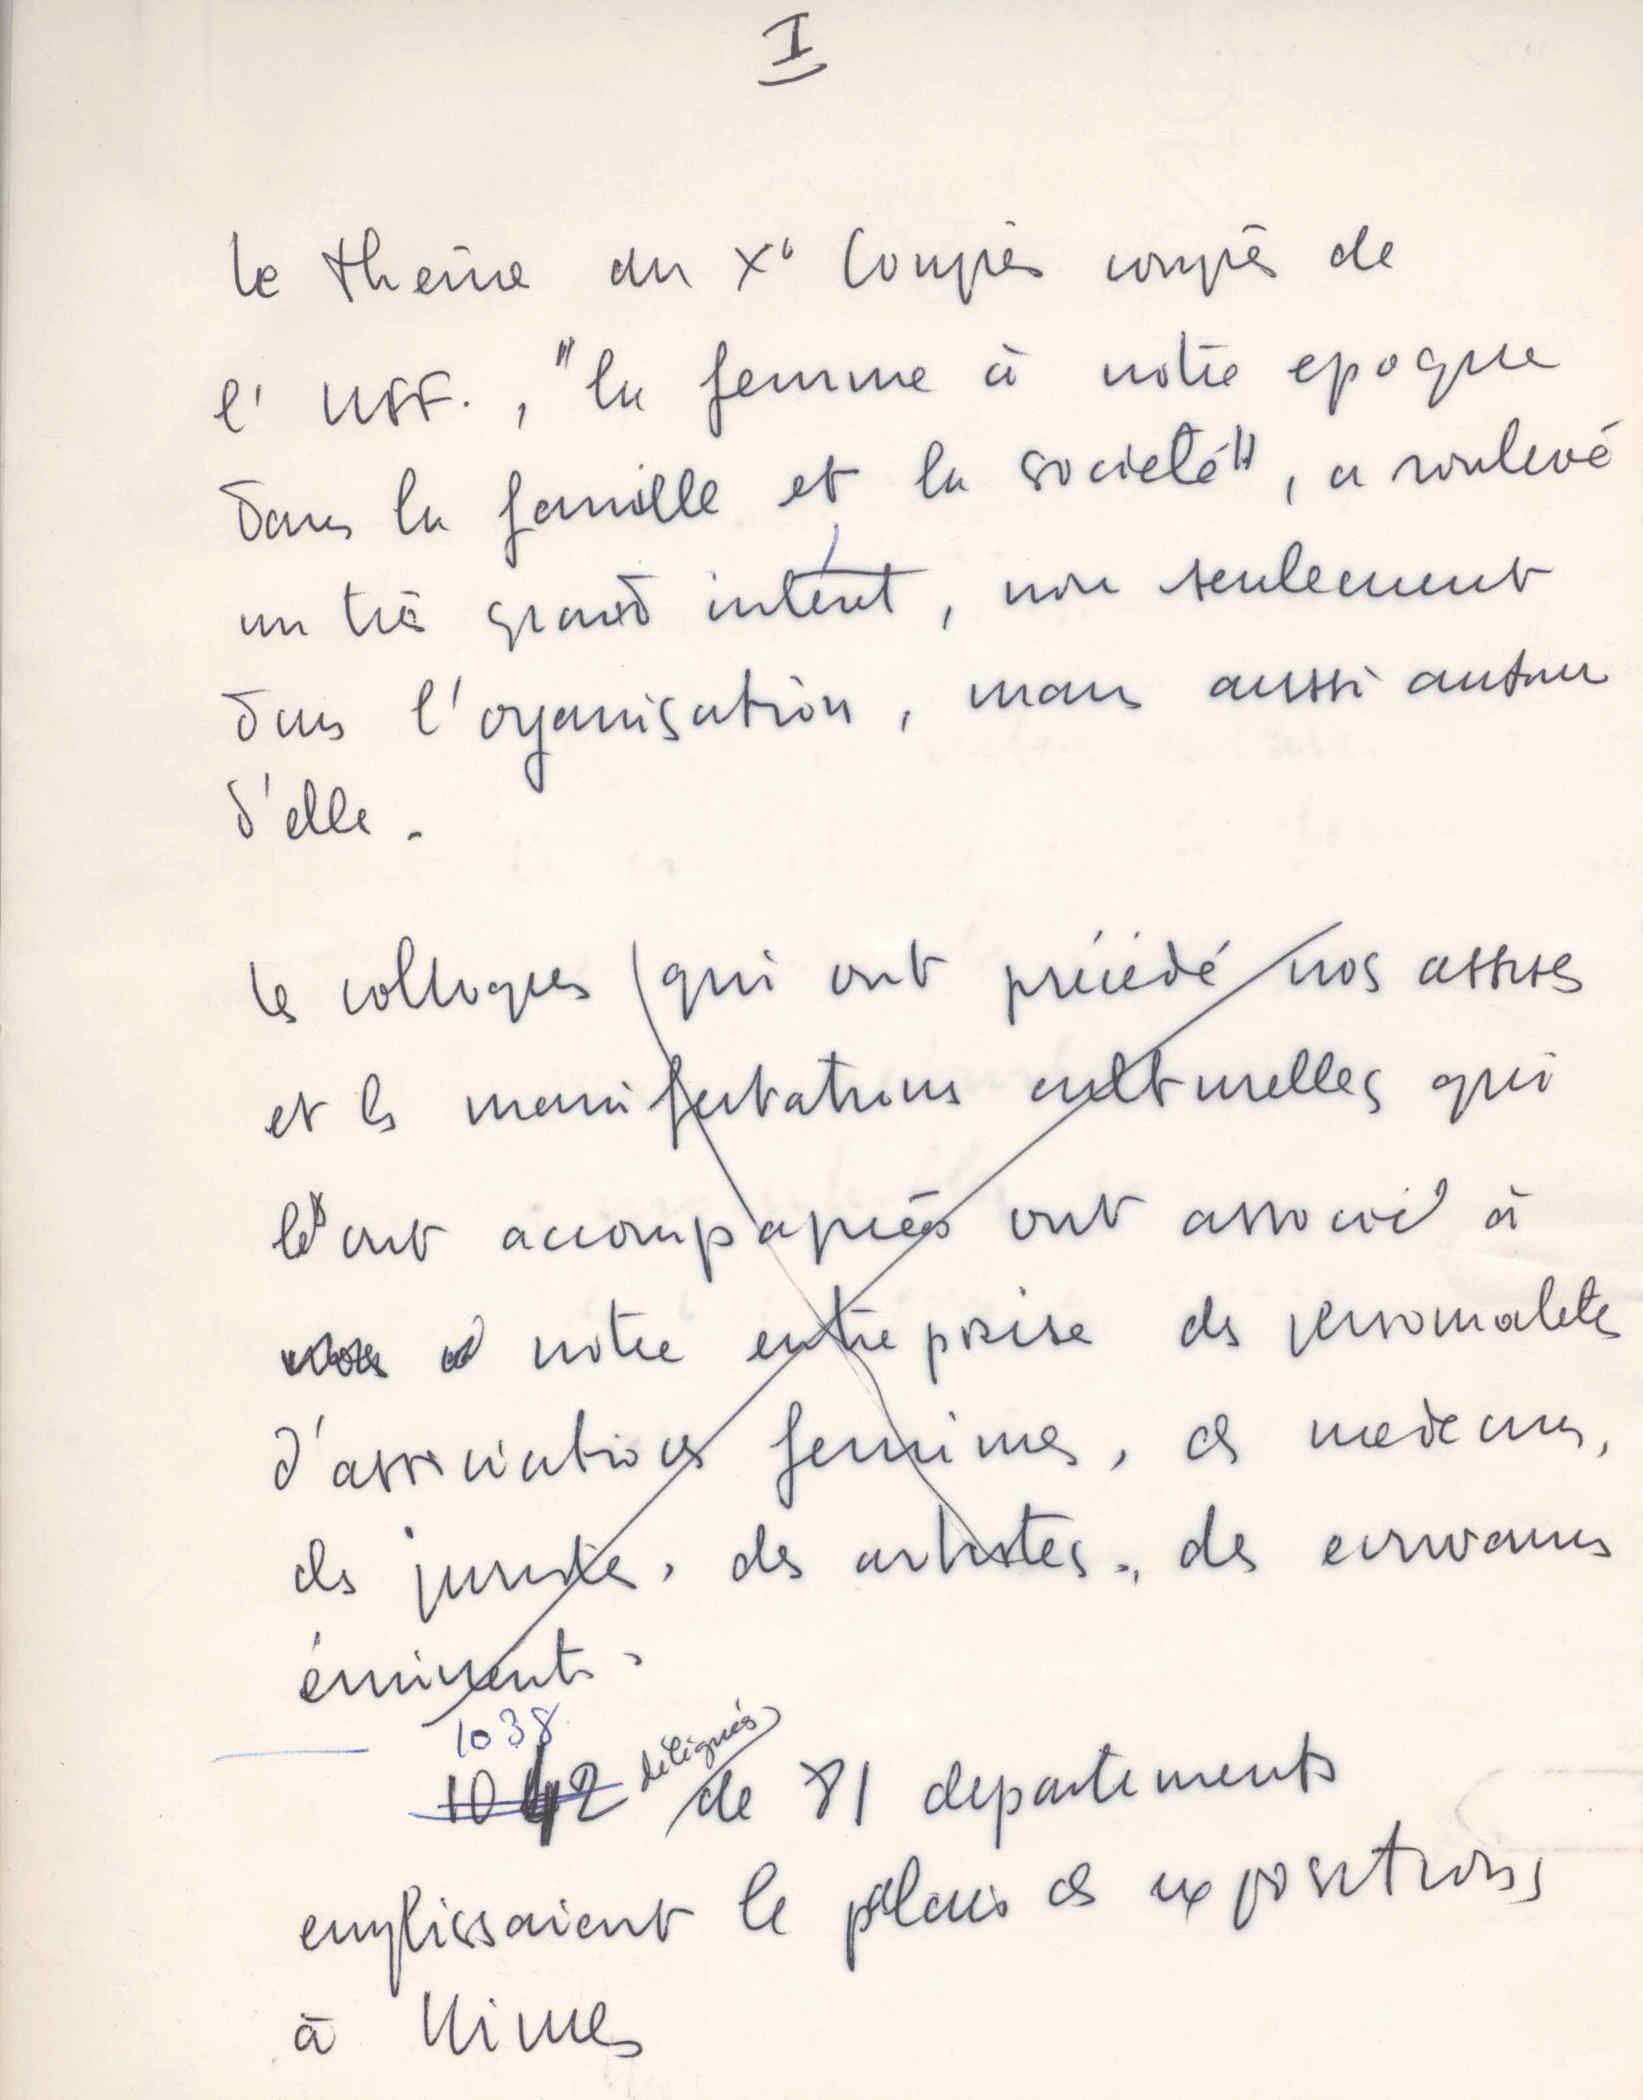 I
le theme du X° Congrès congrès de
l'UFF., "la femme à notre epoque
dans la famille et la societé", a soulevé
un très grand intéret, non seulement
dans l'organisation, mais aussi autour
d'elle.
les colloques qui ont précédé nos assises
et les manifestations culturelles qui
les ont accompagnées ont associé à
notre entreprise des personnalités
d'associations feminines, des medecins,
des juristes, des artistes, des ecrivains
éminents.
1038
1042 délégués de 81 departements
emplissaient le palais des expositions
à Nimes